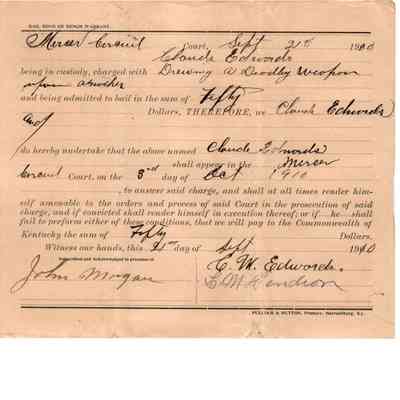 BAIL BOND OR BENCH WARRANT.
Mercer Circuit Court, Sept 21st 1910
Claude Edwards
being in custody, charged with Drewing A Deadley weopon
upon another
and being admitted to bail in the sum of Fifty
Dollars, THEREFORE, we Claude Edwards
and
do hereby undertake that the above named Claude Edwards
shall appear in the Mercer
Circuit Court, on the 3rd day of Oct 1910
, to answer said charge, and shall at all times render him-
self amenable to the orders and process of said Court in the prosecution of said
charge, and if convicted shall render himself in execution thereof; or if he shall
fail to perform either of these conditions, that we will pay to the Commonwealth of
Kentucky the sum of Fifty Dollars.
Witness our hands, this 21st day of Sept 1910
Subscribed and Acknowledged in presence of
C. M. Edwards.
John Morgan